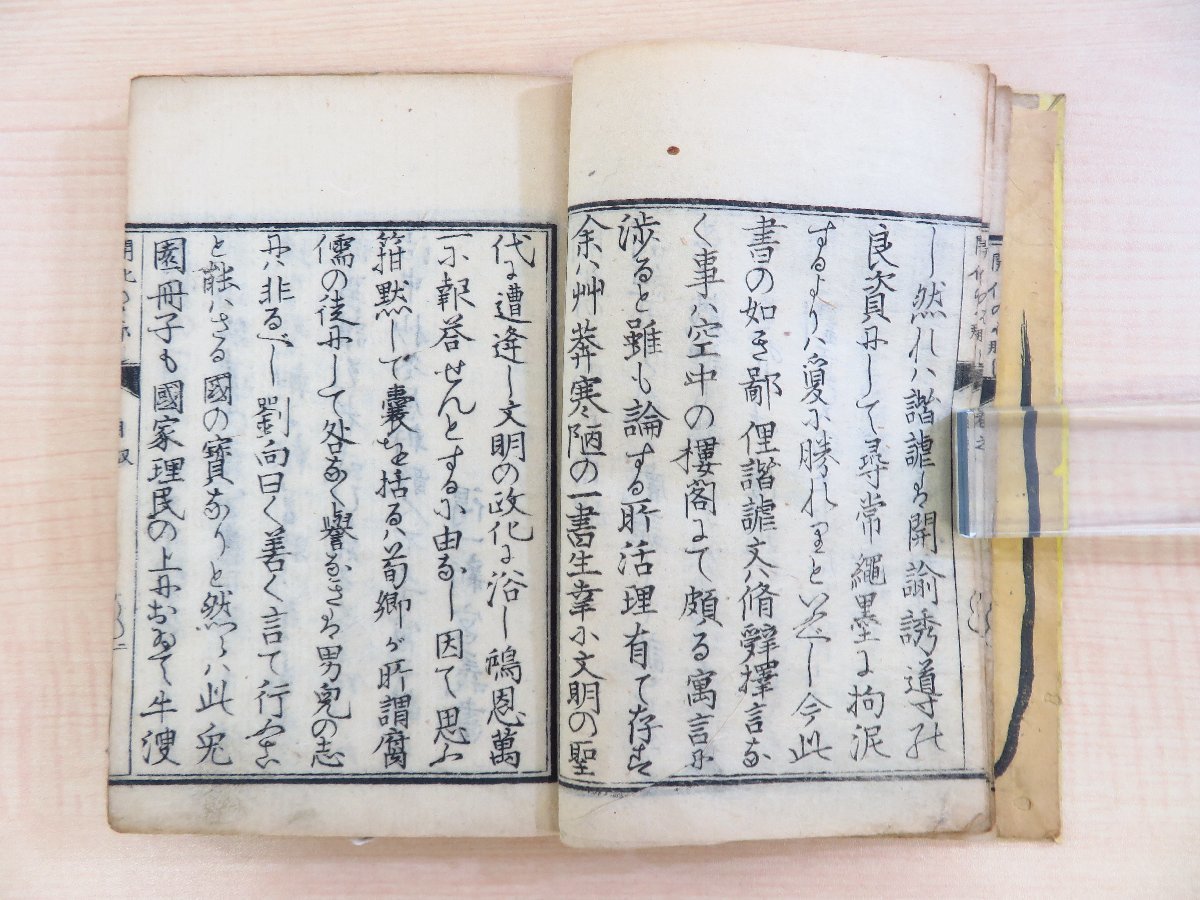 し然れハ諧謔は開諭誘導の
良資にして尋常繩墨に拘泥
するよりハ夐に勝れりといふべし今此
書の如き鄙俚諧謔文ハ脩辭擇言な
く事ハ空中の樓閣にて頗る寓言に
渉ると雖も論する所活理有て存す
余ハ艸莽寒陋の一書生幸に文明の聖
代に遭逢し文明の政化に浴し鴻恩萬
一に報荅せんとするに由なし因て思ふ
箝黙して嚢を括るハ荀卿が所謂腐
儒の徒にして咎なく譽なきは男児の志
に非るべし劉向曰く善く言て行ふこ
と能はさるハ國の寶なりと然らハ此兎
園冊子も國家理民の上において牛溲